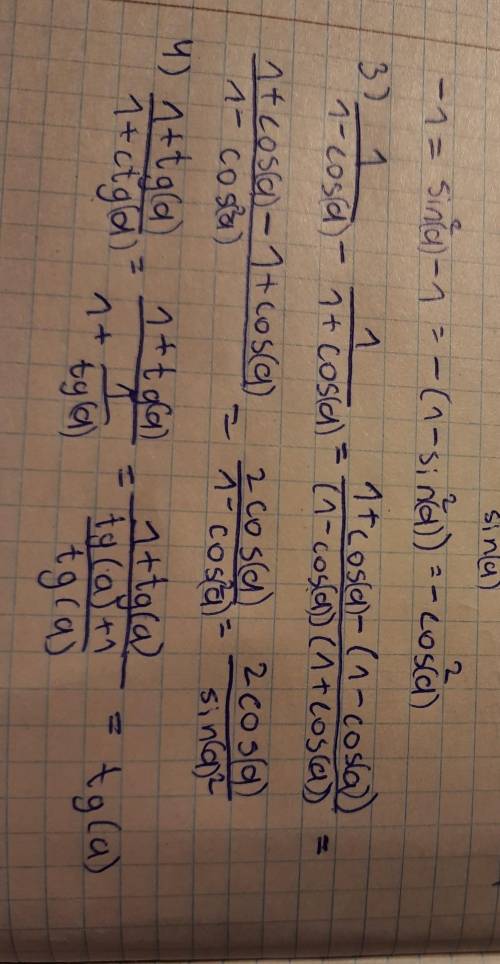 sin(a)
-1 = sin²(a) - 1 = -(1 - sin²(a)) = -cos²(a)
3) 1/(1-cos(a)) - 1/(1+cos(a)) = (1+cos(a)-(1-cos(a)))/((1-cos(a))(1+cos(a))) =
(1+cos(a)-1+cos(a))/(1-cos²(a)) = 2cos(a)/(1-cos²(a)) = 2cos(a)/sin(a)²
4) (1+tg(a))/(1+ctg(a)) = (1+tg(a))/(1+1/tg(a)) = (1+tg(a))/((tg(a)+1)/tg(a)) = tg(a)